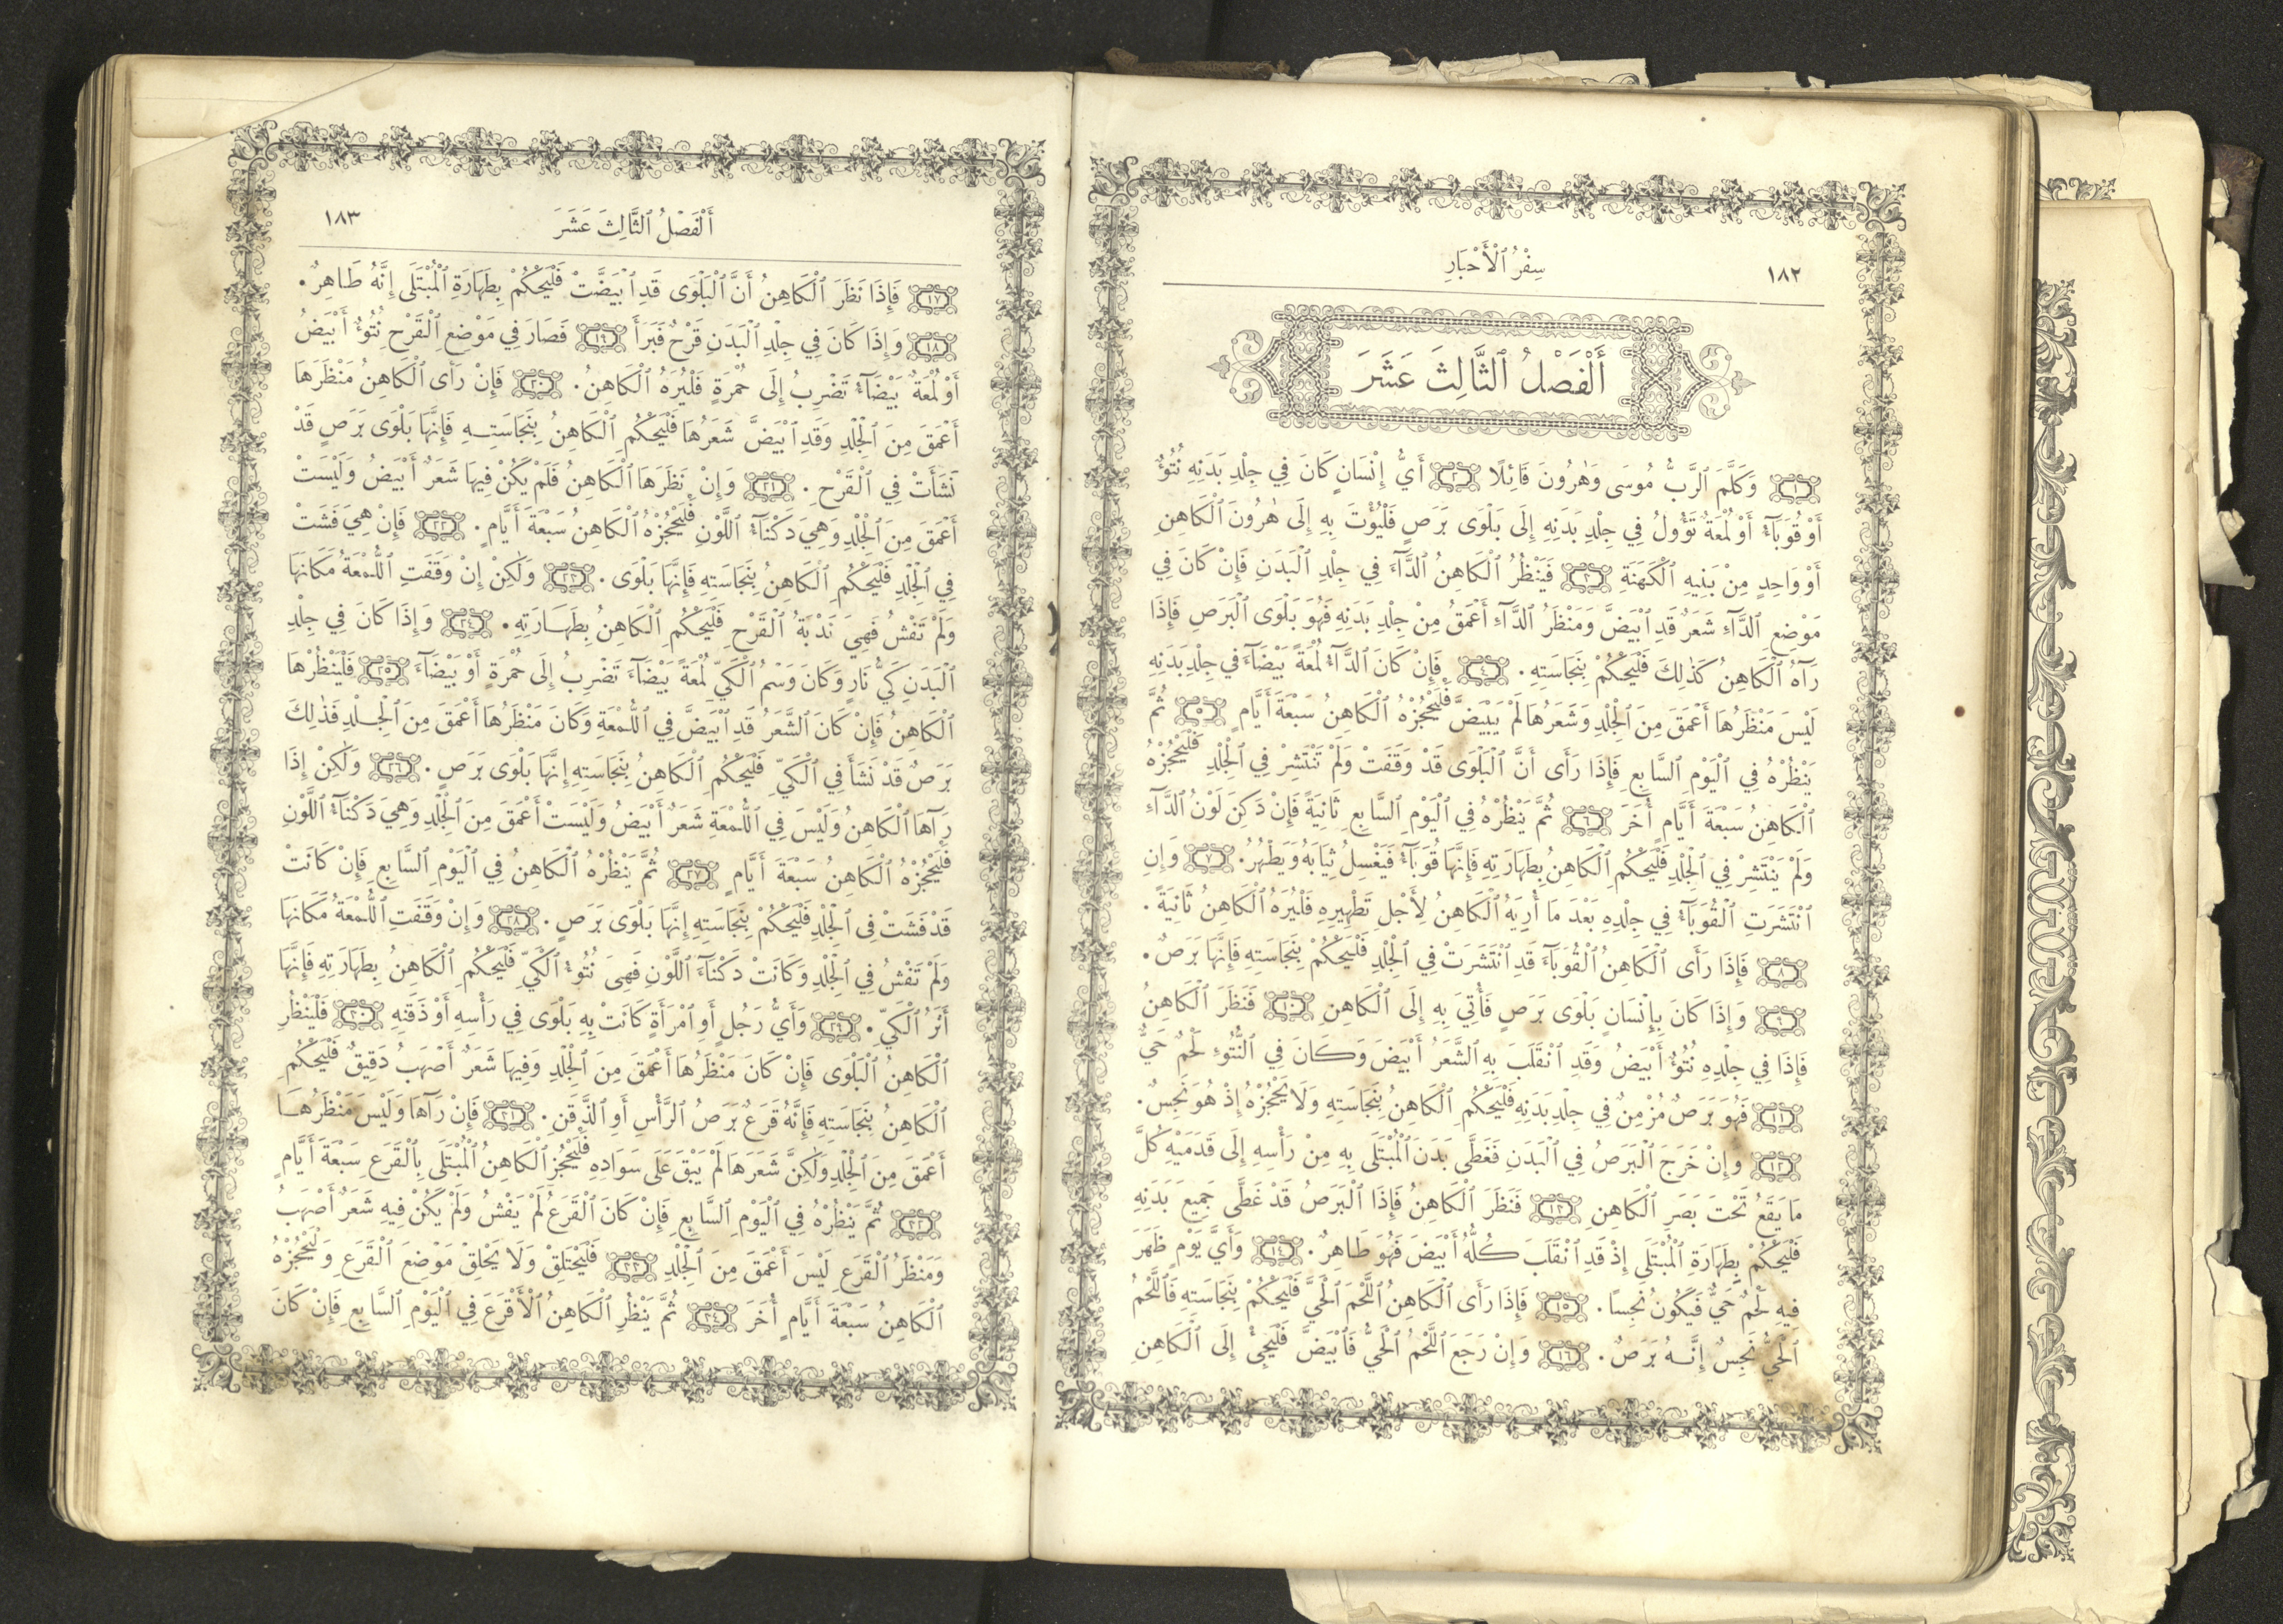 ١٨٢
سِفْرُ ٱلْأَحْبَارِ
أَلْفَصْلُ ٱلثَّالِثَ عَشَرَ
١ وَكَلَّمَ ٱلرَّبُّ مُوسَى وَهٰرُونَ قَائِلًا ٢ أَيُّ إِنْسَانٍ كَانَ فِي جِلْدِ بَدَنِهِ نُتُوءٌ
أَوْ قُوَبَآءُ أَوْ لُمْعَةٌ تَؤُولُ فِي جِلْدِ بَدَنِهِ إِلَى بَلْوَى بَرَصٍ فَلْيُؤْتَ بِهِ إِلَى هٰرُونَ ٱلْكَاهِنِ
أَوْ وَاحِدٍ مِنْ بَنِيهِ ٱلْكَهَنَةِ ٣ فَيَنْظُرُ ٱلْكَاهِنُ ٱلدَّآءَ فِي جِلْدِ ٱلْبَدَنِ فَإِنْ كَانَ فِي
مَوْضِعِ ٱلدَّآءِ شَعَرٌ قَدِ ٱبْيَضَّ وَمَنْظَرُ ٱلدَّآءِ أَعْمَقُ مِنْ جِلْدِ بَدَنِهِ فَهُوَ بَلْوَى ٱلْبَرَصِ فَإِذَا
رَآهُ ٱلْكَاهِنُ كَذٰلِكَ فَلْيَحْكُمْ بِنَجَاسَتِهِ. ٤ فَإِنْ كَانَ ٱلدَّآءُ لُمْعَةً بَيْضَآءَ فِي جِلْدِ بَدَنِهِ
لَيْسَ مَنْظَرُهَا أَعْمَقَ مِنَ ٱلْجِلْدِ وَشَعَرُهَا لَمْ يَبْيَضَّ فَلْيَحْجُزْهُ ٱلْكَاهِنُ سَبْعَةَ أَيَّامٍ ٥ ثُمَّ
يَنْظُرْهُ فِي ٱلْيَوْمِ ٱلسَّابِعِ فَإِذَا رَأَى أَنَّ ٱلْبَلْوَى قَدْ وَقَفَتْ وَلَمْ تَنْتَشِرْ فِي ٱلْجِلْدِ فَلْيَحْجُزْهُ
ٱلْكَاهِنُ سَبْعَةَ أَيَّامٍ أُخَرَ ٦ ثُمَّ يَنْظُرْهُ فِي ٱلْيَوْمِ ٱلسَّابِعِ ثَانِيَةً فَإِنْ دَكِنَ لَوْنُ ٱلدَّآءِ
وَلَمْ يَنْتَشِرْ فِي ٱلْجِلْدِ فَلْيَحْكُمِ ٱلْكَاهِنُ بِطَهَارَتِهِ فَإِنَّهَا قُوَبَآءُ فَيَغْسِلُ ثِيَابَهُ وَيَطْهُرُ. ٧ وَإِنِ
ٱنْتَشَرَتِ ٱلْقُوَبَآءُ فِي جِلْدِهِ بَعْدَ مَا أُرِيَهُ ٱلْكَاهِنُ لِأَجْلِ تَطْهِيرِهِ فَلْيُرَهُ ٱلْكَاهِنُ ثَانِيَةً.
٨ فَإِذَا رَأَى ٱلْكَاهِنُ ٱلْقُوَبَآءَ قَدِ ٱنْتَشَرَتْ فِي ٱلْجِلْدِ فَلْيَحْكُمْ بِنَجَاسَتِهِ فَإِنَّهَا بَرَصٌ.
٩ وَإِذَا كَانَ بِإِنْسَانٍ بَلْوَى بَرَصٍ فَأُتِيَ بِهِ إِلَى ٱلْكَاهِنِ ١٠ فَنَظَرَ ٱلْكَاهِنُ
فَإِذَا فِي جِلْدِهِ نُتُوءٌ أَبْيَضُ وَقَدِ ٱنْقَلَبَ بِهِ ٱلشَّعَرُ أَبْيَضَ وَكَانَ فِي ٱلنُّتُوءِ لَحْمٌ حَيٌّ
١١ فَهُوَ بَرَصٌ مُزْمِنٌ فِي جِلْدِ بَدَنِهِ فَلْيَحْكُمِ ٱلْكَاهِنُ بِنَجَاسَتِهِ وَلَا يَحْجُزْهُ إِذْ هُوَ نَجِسٌ.
١٢ وَإِنْ خَرَجَ ٱلْبَرَصُ فِي ٱلْبَدَنِ فَغَطَّى بَدَنَ ٱلْمُبْتَلَى بِهِ مِنْ رَأْسِهِ إِلَى قَدَمَيْهِ كُلَّ
مَا يَقَعُ تَحْتَ بَصَرِ ٱلْكَاهِنِ ١٣ فَنَظَرَ ٱلْكَاهِنُ فَإِذَا ٱلْبَرَصُ قَدْ غَطَّى جَمِيعَ بَدَنِهِ
فَلْيَحْكُمْ بِطَهَارَةِ ٱلْمُبْتَلَى إِذْ قَدِ ٱنْقَلَبَ كُلُّهُ أَبْيَضَ فَهُوَ طَاهِرٌ. ١٤ وَأَيَّ يَوْمٍ ظَهَرَ
فِيهِ لَحْمٌ حَيٌّ فَيَكُونُ نَجِسًا. ١٥ فَإِذَا رَأَى ٱلْكَاهِنُ ٱللَّحْمَ ٱلْحَيَّ فَلْيَحْكُمْ بِنَجَاسَتِهِ فَٱللَّحْمُ
ٱلْحَيُّ نَجِسٌ إِنَّهُ بَرَصٌ. ١٦ وَإِنْ رَجَعَ ٱللَّحْمُ ٱلْحَيُّ فَٱبْيَضَّ فَلْيَجِئْ إِلَى ٱلْكَاهِنِ
أَلْفَصْلُ ٱلثَّالِثَ عَشَرَ
١٨٣
١٧ فَإِذَا نَظَرَ ٱلْكَاهِنُ أَنَّ ٱلْبَلْوَى قَدِ ٱبْيَضَّتْ فَلْيَحْكُمْ بِطَهَارَةِ ٱلْمُبْتَلَى إِنَّهُ طَاهِرٌ.
١٨ وَإِذَا كَانَ فِي جِلْدِ ٱلْبَدَنِ قَرْحٌ فَبَرَأَ ١٩ فَصَارَ فِي مَوْضِعِ ٱلْقَرْحِ نُتُوءٌ أَبْيَضُ
أَوْ لُمْعَةٌ بَيْضَآءُ تَضْرِبُ إِلَى حُمْرَةٍ فَلْيُرَهُ ٱلْكَاهِنُ. ٢٠ فَإِنْ رَأَى ٱلْكَاهِنُ مَنْظَرَهَا
أَعْمَقَ مِنَ ٱلْجِلْدِ وَقَدِ ٱبْيَضَّ شَعَرُهَا فَلْيَحْكُمِ ٱلْكَاهِنُ بِنَجَاسَتِهِ فَإِنَّهَا بَلْوَى بَرَصٍ قَدْ
نَشَأَتْ فِي ٱلْقَرْحِ. ٢١ وَإِنْ نَظَرَهَا ٱلْكَاهِنُ فَلَمْ يَكُنْ فِيهَا شَعَرٌ أَبْيَضُ وَلَيْسَتْ
أَعْمَقَ مِنَ ٱلْجِلْدِ وَهِيَ دَكْنَآءُ ٱللَّوْنِ فَلْيَحْجُزْهُ ٱلْكَاهِنُ سَبْعَةَ أَيَّامٍ. ٢٢ فَإِنْ هِيَ فَشَتْ
فِي ٱلْجِلْدِ فَلْيَحْكُمِ ٱلْكَاهِنُ بِنَجَاسَتِهِ فَإِنَّهَا بَلْوَى. ٢٣ وَلٰكِنْ إِنْ وَقَفَتِ ٱللُّمْعَةُ مَكَانَهَا
وَلَمْ تَفْشُ فَهِيَ نَدْبَةُ ٱلْقَرْحِ فَلْيَحْكُمِ ٱلْكَاهِنُ بِطَهَارَتِهِ. ٢٤ وَإِذَا كَانَ فِي جِلْدِ
ٱلْبَدَنِ كَيُّ نَارٍ وَكَانَ وَسْمُ ٱلْكَيِّ لُمْعَةً بَيْضَآءَ تَضْرِبُ إِلَى حُمْرَةٍ أَوْ بَيْضَآءَ ٢٥ فَلْيَنْظُرْهَا
ٱلْكَاهِنُ فَإِنْ كَانَ ٱلشَّعَرُ قَدِ ٱبْيَضَّ فِي ٱللُّمْعَةِ وَكَانَ مَنْظَرُهَا أَعْمَقَ مِنَ ٱلْجِلْدِ فَذٰلِكَ
بَرَصٌ قَدْ نَشَأَ فِي ٱلْكَيِّ فَلْيَحْكُمِ ٱلْكَاهِنُ بِنَجَاسَتِهِ إِنَّهَا بَلْوَى بَرَصٍ. ٢٦ وَلٰكِنْ إِذَا
رَآهَا ٱلْكَاهِنُ وَلَيْسَ فِي ٱللُّمْعَةِ شَعَرٌ أَبْيَضُ وَلَيْسَتْ أَعْمَقَ مِنَ ٱلْجِلْدِ وَهِيَ دَكْنَآءُ ٱللَّوْنِ
فَلْيَحْجُزْهُ ٱلْكَاهِنُ سَبْعَةَ أَيَّامٍ ٢٧ ثُمَّ يَنْظُرْهُ ٱلْكَاهِنُ فِي ٱلْيَوْمِ ٱلسَّابِعِ فَإِنْ كَانَتْ
قَدْ فَشَتْ فِي ٱلْجِلْدِ فَلْيَحْكُمْ بِنَجَاسَتِهِ إِنَّهَا بَلْوَى بَرَصٍ. ٢٨ وَإِنْ وَقَفَتِ ٱللُّمْعَةُ مَكَانَهَا
وَلَمْ تَفْشُ فِي ٱلْجِلْدِ وَكَانَتْ دَكْنَآءَ ٱللَّوْنِ فَهِيَ نُتُوءُ ٱلْكَيِّ فَلْيَحْكُمِ ٱلْكَاهِنُ بِطَهَارَتِهِ فَإِنَّهَا
أَثَرُ ٱلْكَيِّ. ٢٩ وَأَيُّ رَجُلٍ أَوِ ٱمْرَأَةٍ كَانَتْ بِهِ بَلْوَى فِي رَأْسِهِ أَوْ ذَقَنِهِ ٣٠ فَلْيَنْظُرِ
ٱلْكَاهِنُ ٱلْبَلْوَى فَإِنْ كَانَ مَنْظَرُهَا أَعْمَقَ مِنَ ٱلْجِلْدِ وَفِيهَا شَعَرٌ أَصْهَبُ دَقِيقٌ فَلْيَحْكُمِ
ٱلْكَاهِنُ بِنَجَاسَتِهِ فَإِنَّهُ قَرَعٌ بَرَصُ ٱلرَّأْسِ أَوِ ٱلذَّقَنِ. ٣١ فَإِنْ رَآهَا وَلَيْسَ مَنْظَرُهَا
أَعْمَقَ مِنَ ٱلْجِلْدِ وَلٰكِنَّ شَعَرَهَا لَمْ يَبْقَ عَلَى سَوَادِهِ فَلْيَحْجُزِ ٱلْكَاهِنُ ٱلْمُبْتَلَى بِٱلْقَرَعِ سَبْعَةَ أَيَّامٍ
٣٢ ثُمَّ يَنْظُرْهُ فِي ٱلْيَوْمِ ٱلسَّابِعِ فَإِنْ كَانَ ٱلْقَرَعُ لَمْ يَفْشُ وَلَمْ يَكُنْ فِيهِ شَعَرٌ أَصْهَبُ
وَمَنْظَرُ ٱلْقَرَعِ لَيْسَ أَعْمَقَ مِنَ ٱلْجِلْدِ ٣٣ فَلْيَحْتَلِقْ وَلَا يَحْلِقْ مَوْضِعَ ٱلْقَرَعِ وَلْيَحْجُزْهُ
ٱلْكَاهِنُ سَبْعَةَ أَيَّامٍ أُخَرَ ٣٤ ثُمَّ يَنْظُرِ ٱلْكَاهِنُ ٱلْأَقْرَعَ فِي ٱلْيَوْمِ ٱلسَّابِعِ فَإِنْ كَانَ